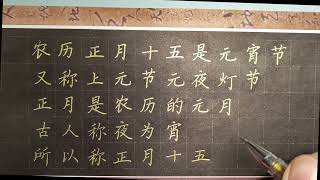 农历正月十五是元宵节
又称上元节元夜灯节
正月是农历的元月
古人称夜为宵
所以称正月十五